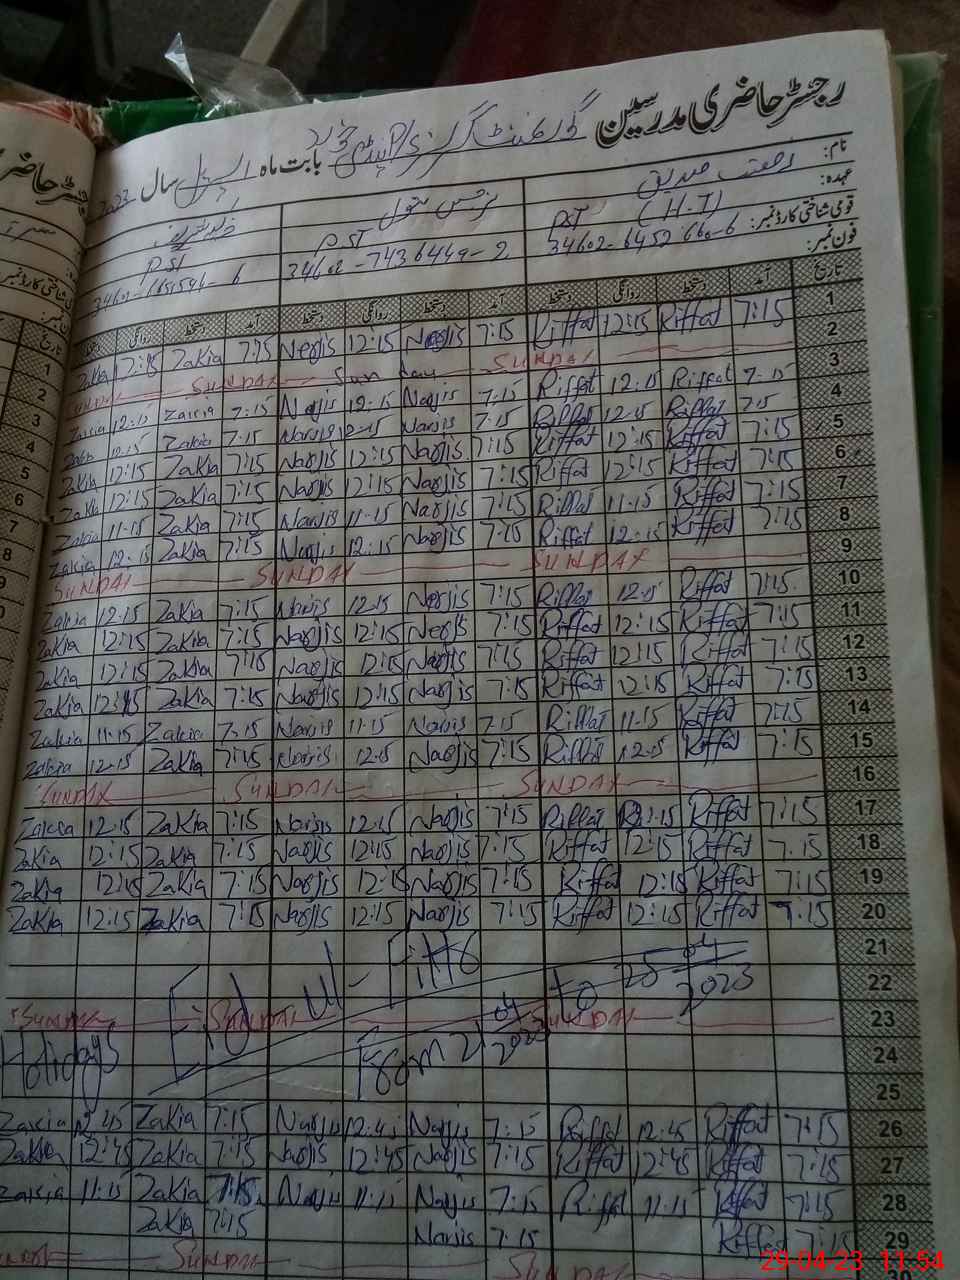 رجسٹر حاضری مدرسین گورنمنٹ گرلز بابت ماہ اپریل سال 2023
نام: رفعت صدیق نرجس بتول
عہدہ: PST (H.T) PST PST
قومی شناختی کارڈ نمبر: 34602-6452660-6 34602-7436449-2
فون نمبر:
تاریخ آمد دستخط روانگی دستخط آمد دستخط روانگی دستخط آمد دستخط روانگی دستخط
1 7:15 Riffat 12:15 Riffat 7:15 Narjis 12:15 Nerjis 7:15 Zakia 7:15 Zakia
2 SUNDAY Sunday SUNDAY
3 7.15 Riffat 12.15 Riffat 7.15 Narjis 12.15 Narjis 7.15 Zakia 12.15 Zakia
4 7.15 Riffat 12.15 Riffat 7.15 Narjis 12.15 Narjis 7.15 Zakia 12.15 Zakia
5 7:15 Riffat 12:15 Riffat 7:15 Narjis 12:15 Narjis 7:15 Zakia 12:15 Zakia
6 7:15 Riffat 12:15 Riffat 7:15 Narjis 12:15 Narjis 7:15 Zakia 12:15 Zakia
7 7:15 Riffat 11-15 Riffat 7:15 Narjis 11-15 Narjis 7:15 Zakia 11-15 Zakia
8 7:15 Riffat 12:15 Riffat 7:15 Narjis 12:15 Narjis 7:15 Zakia 12:15 Zakia
9 SUNDAY SUNDAY SUNDAY
10 7:15 Riffat 12.15 Riffat 7:15 Nerjis 12.15 Narjis 7:15 Zakia 12.15 Zakia
11 7:15 Riffat 12:15 Riffat 7:15 Nerjis 12:15 Narjis 7:15 Zakia 12:15 Zakia
12 7:15 Riffat 12:15 Riffat 7:15 Narjis 12:15 Narjis 7:15 Zakia 12:15 Zakia
13 7:15 Riffat 12:15 Riffat 7:15 Narjis 12:15 Narjis 7:15 Zakia 12:15 Zakia
14 7:15 Riffat 11-15 Riffat 7.15 Narjis 11-15 Narjis 7.15 Zakia 11.15 Zakia
15 7:15 Riffat 12.15 Riffat 7:15 Narjis 12.15 Narjis 7:15 Zakia 12.15 Zakia
16 SUNDAY SUNDAY SUNDAY
17 7:15 Riffat 12:15 Riffat 7:15 Narjis 12.15 Narjis 7:15 Zakia 12.15 Zakia
18 7.15 Riffat 12:15 Riffat 7:15 Narjis 12:15 Narjis 7:15 Zakia 12:15 Zakia
19 7:15 Riffat 12:15 Riffat 7:15 Narjis 12:15 Narjis 7:15 Zakia 12:15 Zakia
20 7:15 Riffat 12:15 Riffat 7:15 Narjis 12:15 Narjis 7:15 Zakia 12:15 Zakia
21
22 Eid-ul-Fitr
23 SUNDAY SUNDAY SUNDAY
24 Holidays From 21 04 2023 to 25 04 2023
25
26 7:15 Riffat 12:45 Riffat 7:15 Narjis 12:45 Narjis 7:15 Zakia 12.45 Zakia
27 7:15 Riffat 12:45 Riffat 7:15 Narjis 12:45 Narjis 7:15 Zakia 12:45 Zakia
28 7:15 Riffat 11:15 Riffat 7:15 Narjis 11:15 Narjis 7:15 Zakia 11:15 Zakia
29 7:15 Riffat 7:15 Narjis 7:15 Zakia
SUNDAY SUNDAY
29-04-23 11:54